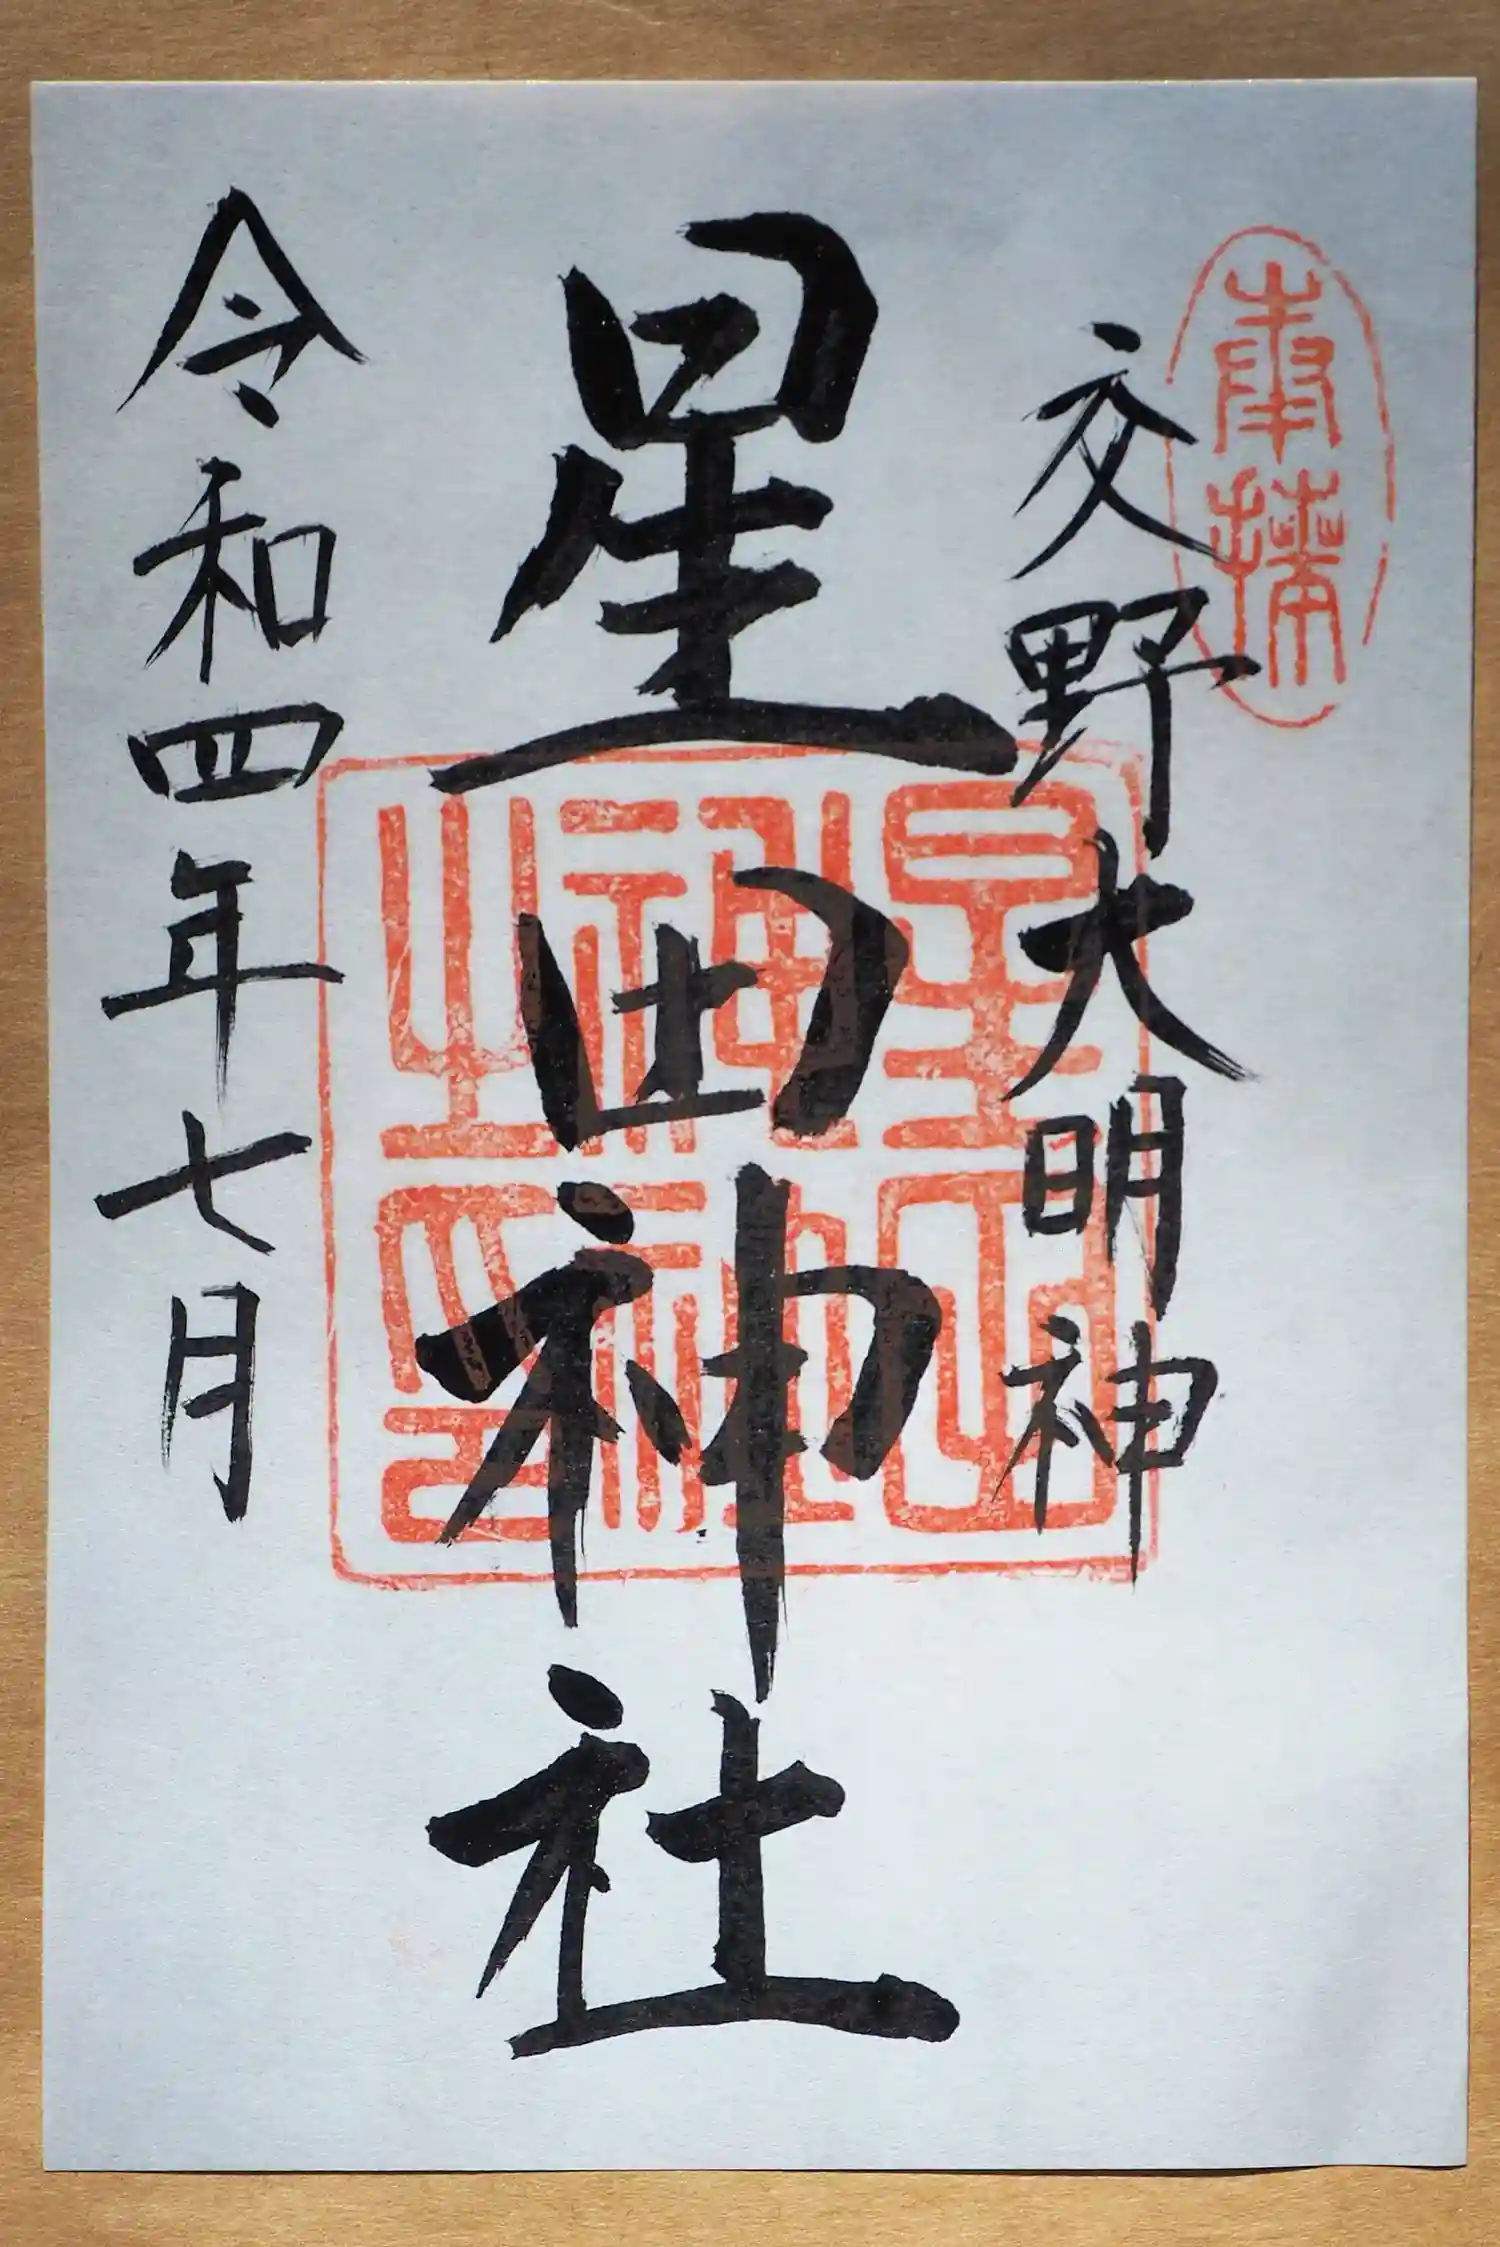 奉拝
交野大明神
星田神社
星田神社之印
令和四年七月